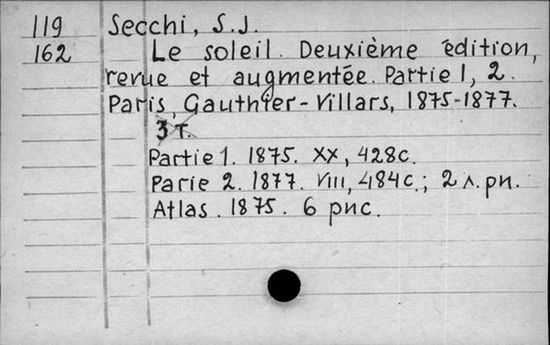 119 Secchi, S.J.
162 Le soleil. Deuxième édition,
revue et augmentée. Partie 1, 2.
Paris, Gauthier-Villars, 1875-1877.
3 т.
Partie 1. 1875. XX, 428с.
Parie 2. 1877. VIII, 484с.; 2 л. рис.
Atlas. 1875. 6 рис.